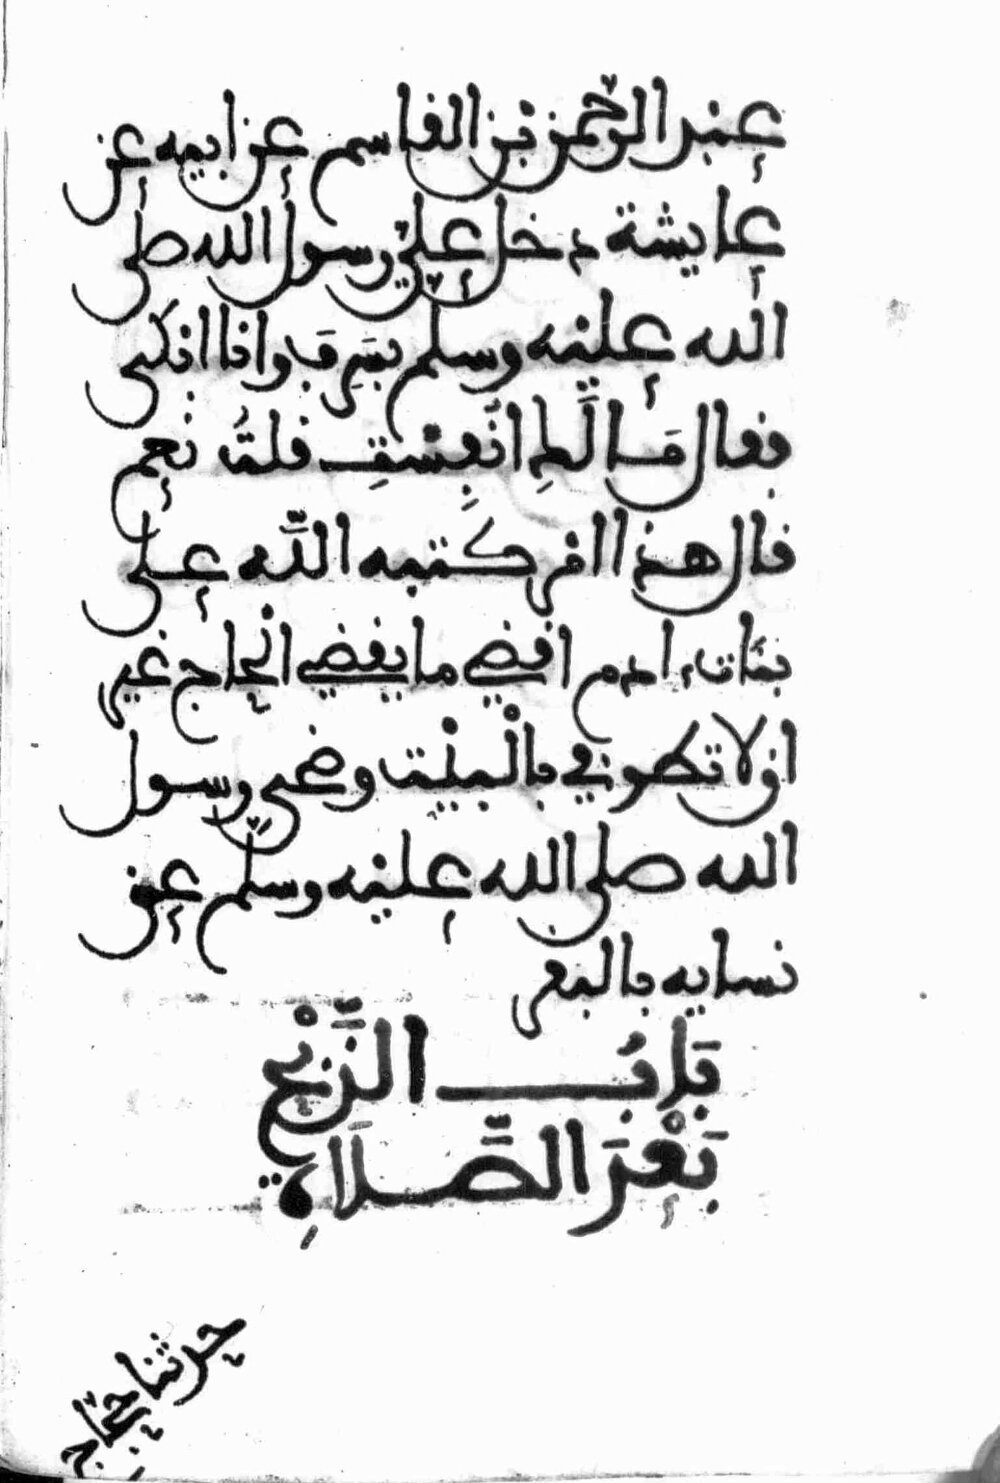 عبد الرحمن بن القاسم عن ابيه عن
عايشة دخل علي رسول الله صلى
الله عليه وسلم بسرف وانا ابكى
فقال مَا لَكِ أنَفِسْتِ قلتُ نعم
قال هذا امر كتبه اللّه على
بنات ادم اقضي ما يقضي الحاج غير
ان لا تطوفي بالْبيْت وضحى رسول
الله صلى الله عليه وسلم عن
نسايه بالبقر
بَابُ الذَّبْحِ
بَعْدَ الصَّلَاةِ
حدثنا حجاج